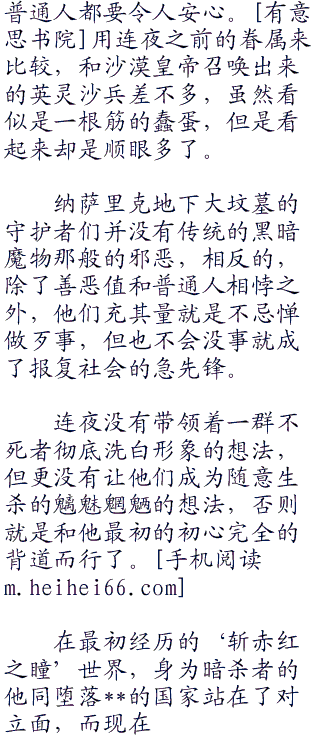 普通人都要令人安心。[有意
思书院]用连夜之前的眷属来
比较，和沙漠皇帝召唤出来
的英灵沙兵差不多，虽然看
似是一根筋的蠢蛋，但是看
起来却是顺眼多了。
纳萨里克地下大坟墓的
守护者们并没有传统的黑暗
魔物那般的邪恶，相反的，
除了善恶值和普通人相悖之
外，他们充其量就是不忌惮
做歹事，但也不会没事就成
了报复社会的急先锋。
连夜没有带领着一群不
死者彻底洗白形象的想法，
但更没有让他们成为随意生
杀的魑魅魍魉的想法，否则
就是和他最初的初心完全的
背道而行了。[手机阅读
m.heihei66.com]
在最初经历的‘斩赤红
之瞳’世界，身为暗杀者的
他同堕落**的国家站在了对
立面，而现在